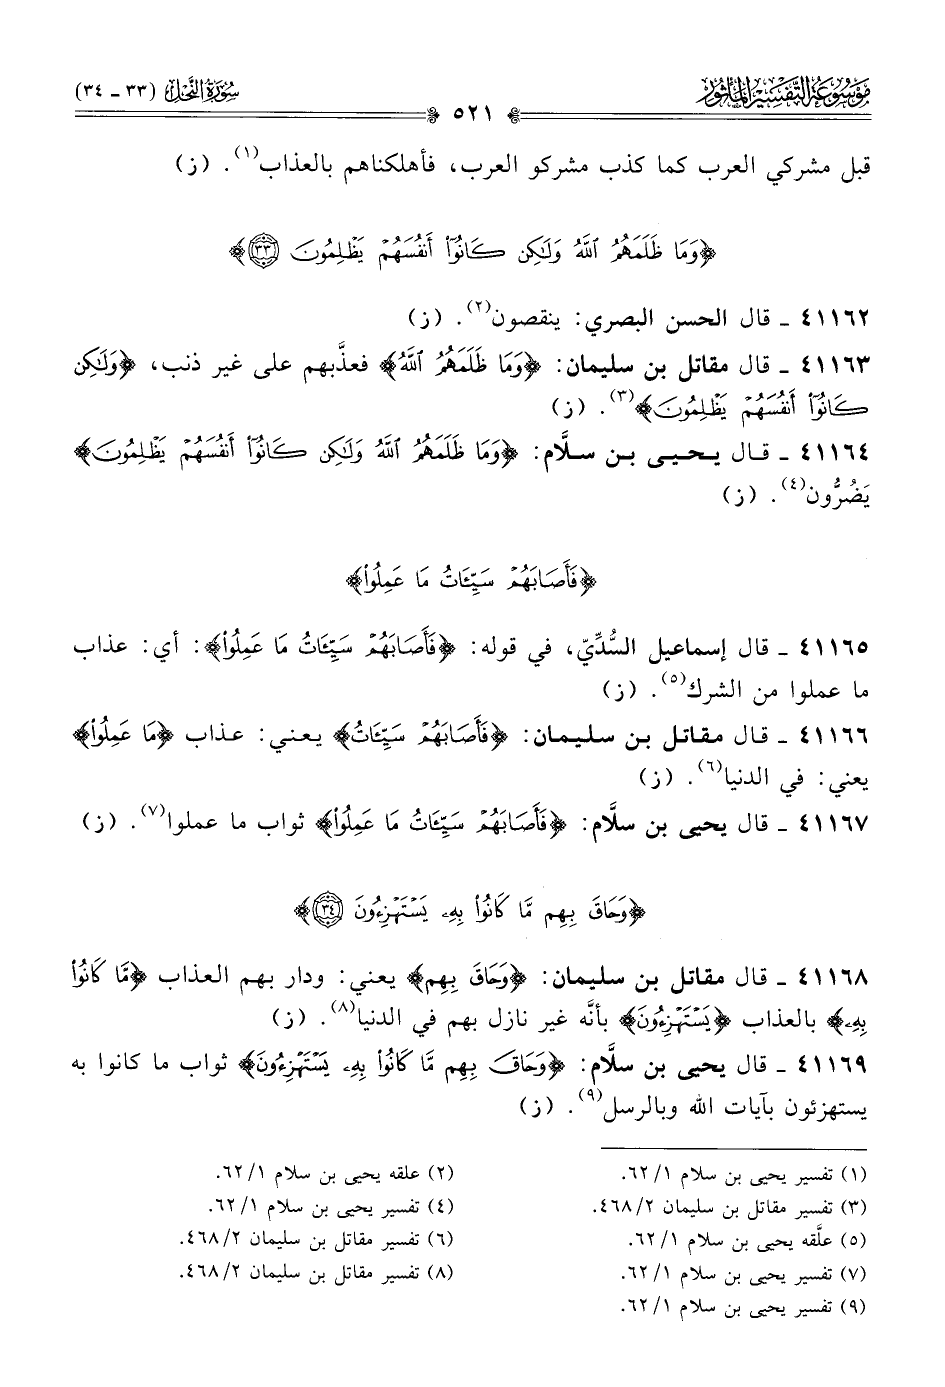 مَوْسُوعَةُ التَّفْسِيرِ المَأْثُورِ
سُورَةُ النَّحْلِ (٣٣ - ٣٤)
٥٢١
قبل مشركي العرب كما كذب مشركو العرب، فأهلكناهم بالعذاب(١). (ز)
﴿وَمَا ظَلَمَهُمُ ٱللَّهُ وَلَٰكِن كَانُوٓا۟ أَنفُسَهُمْ يَظْلِمُونَ ٣٣﴾
٤١١٦٢ - قال الحسن البصري: ينقصون(٢). (ز)
٤١١٦٣ - قال مقاتل بن سليمان: ﴿وَمَا ظَلَمَهُمُ ٱللَّهُ﴾ فعذَّبهم على غير ذنب، ﴿وَلَٰكِن
كَانُوٓا۟ أَنفُسَهُمْ يَظْلِمُونَ﴾(٣). (ز)
٤١١٦٤ - قال يحيى بن سلَّام: ﴿وَمَا ظَلَمَهُمُ ٱللَّهُ وَلَٰكِن كَانُوٓا۟ أَنفُسَهُمْ يَظْلِمُونَ﴾
يَضُرُّون(٤). (ز)
﴿فَأَصَابَهُمْ سَيِّـَٔاتُ مَا عَمِلُوا۟﴾
٤١١٦٥ - قال إسماعيل السُّدِّيّ، في قوله: ﴿فَأَصَابَهُمْ سَيِّـَٔاتُ مَا عَمِلُوا۟﴾: أي: عذاب
ما عملوا من الشرك(٥). (ز)
٤١١٦٦ - قال مقاتل بن سليمان: ﴿فَأَصَابَهُمْ سَيِّـَٔاتُ﴾ يعني: عذاب ﴿مَا عَمِلُوا۟﴾
يعني: في الدنيا(٦). (ز)
٤١١٦٧ - قال يحيى بن سلَّام: ﴿فَأَصَابَهُمْ سَيِّـَٔاتُ مَا عَمِلُوا۟﴾ ثواب ما عملوا(٧). (ز)
﴿وَحَاقَ بِهِم مَّا كَانُوا۟ بِهِۦ يَسْتَهْزِءُونَ ٣٤﴾
٤١١٦٨ - قال مقاتل بن سليمان: ﴿وَحَاقَ بِهِم﴾ يعني: ودار بهم العذاب ﴿مَّا كَانُوا۟
بِهِۦ﴾ بالعذاب ﴿يَسْتَهْزِءُونَ﴾ بأنَّه غير نازل بهم في الدنيا(٨). (ز)
٤١١٦٩ - قال يحيى بن سلَّام: ﴿وَحَاقَ بِهِم مَّا كَانُوا۟ بِهِۦ يَسْتَهْزِءُونَ﴾ ثواب ما كانوا به
يستهزئون بآيات الله وبالرسل(٩). (ز)
(١) تفسير يحيى بن سلام ١/ ٦٢.
(٢) علقه يحيى بن سلام ١/ ٦٢.
(٣) تفسير مقاتل بن سليمان ٢/ ٤٦٨.
(٤) تفسير يحيى بن سلام ١/ ٦٢.
(٥) علَّقه يحيى بن سلام ١/ ٦٢.
(٦) تفسير مقاتل بن سليمان ٢/ ٤٦٨.
(٧) تفسير يحيى بن سلام ١/ ٦٢.
(٨) تفسير مقاتل بن سليمان ٢/ ٤٦٨.
(٩) تفسير يحيى بن سلام ١/ ٦٢.